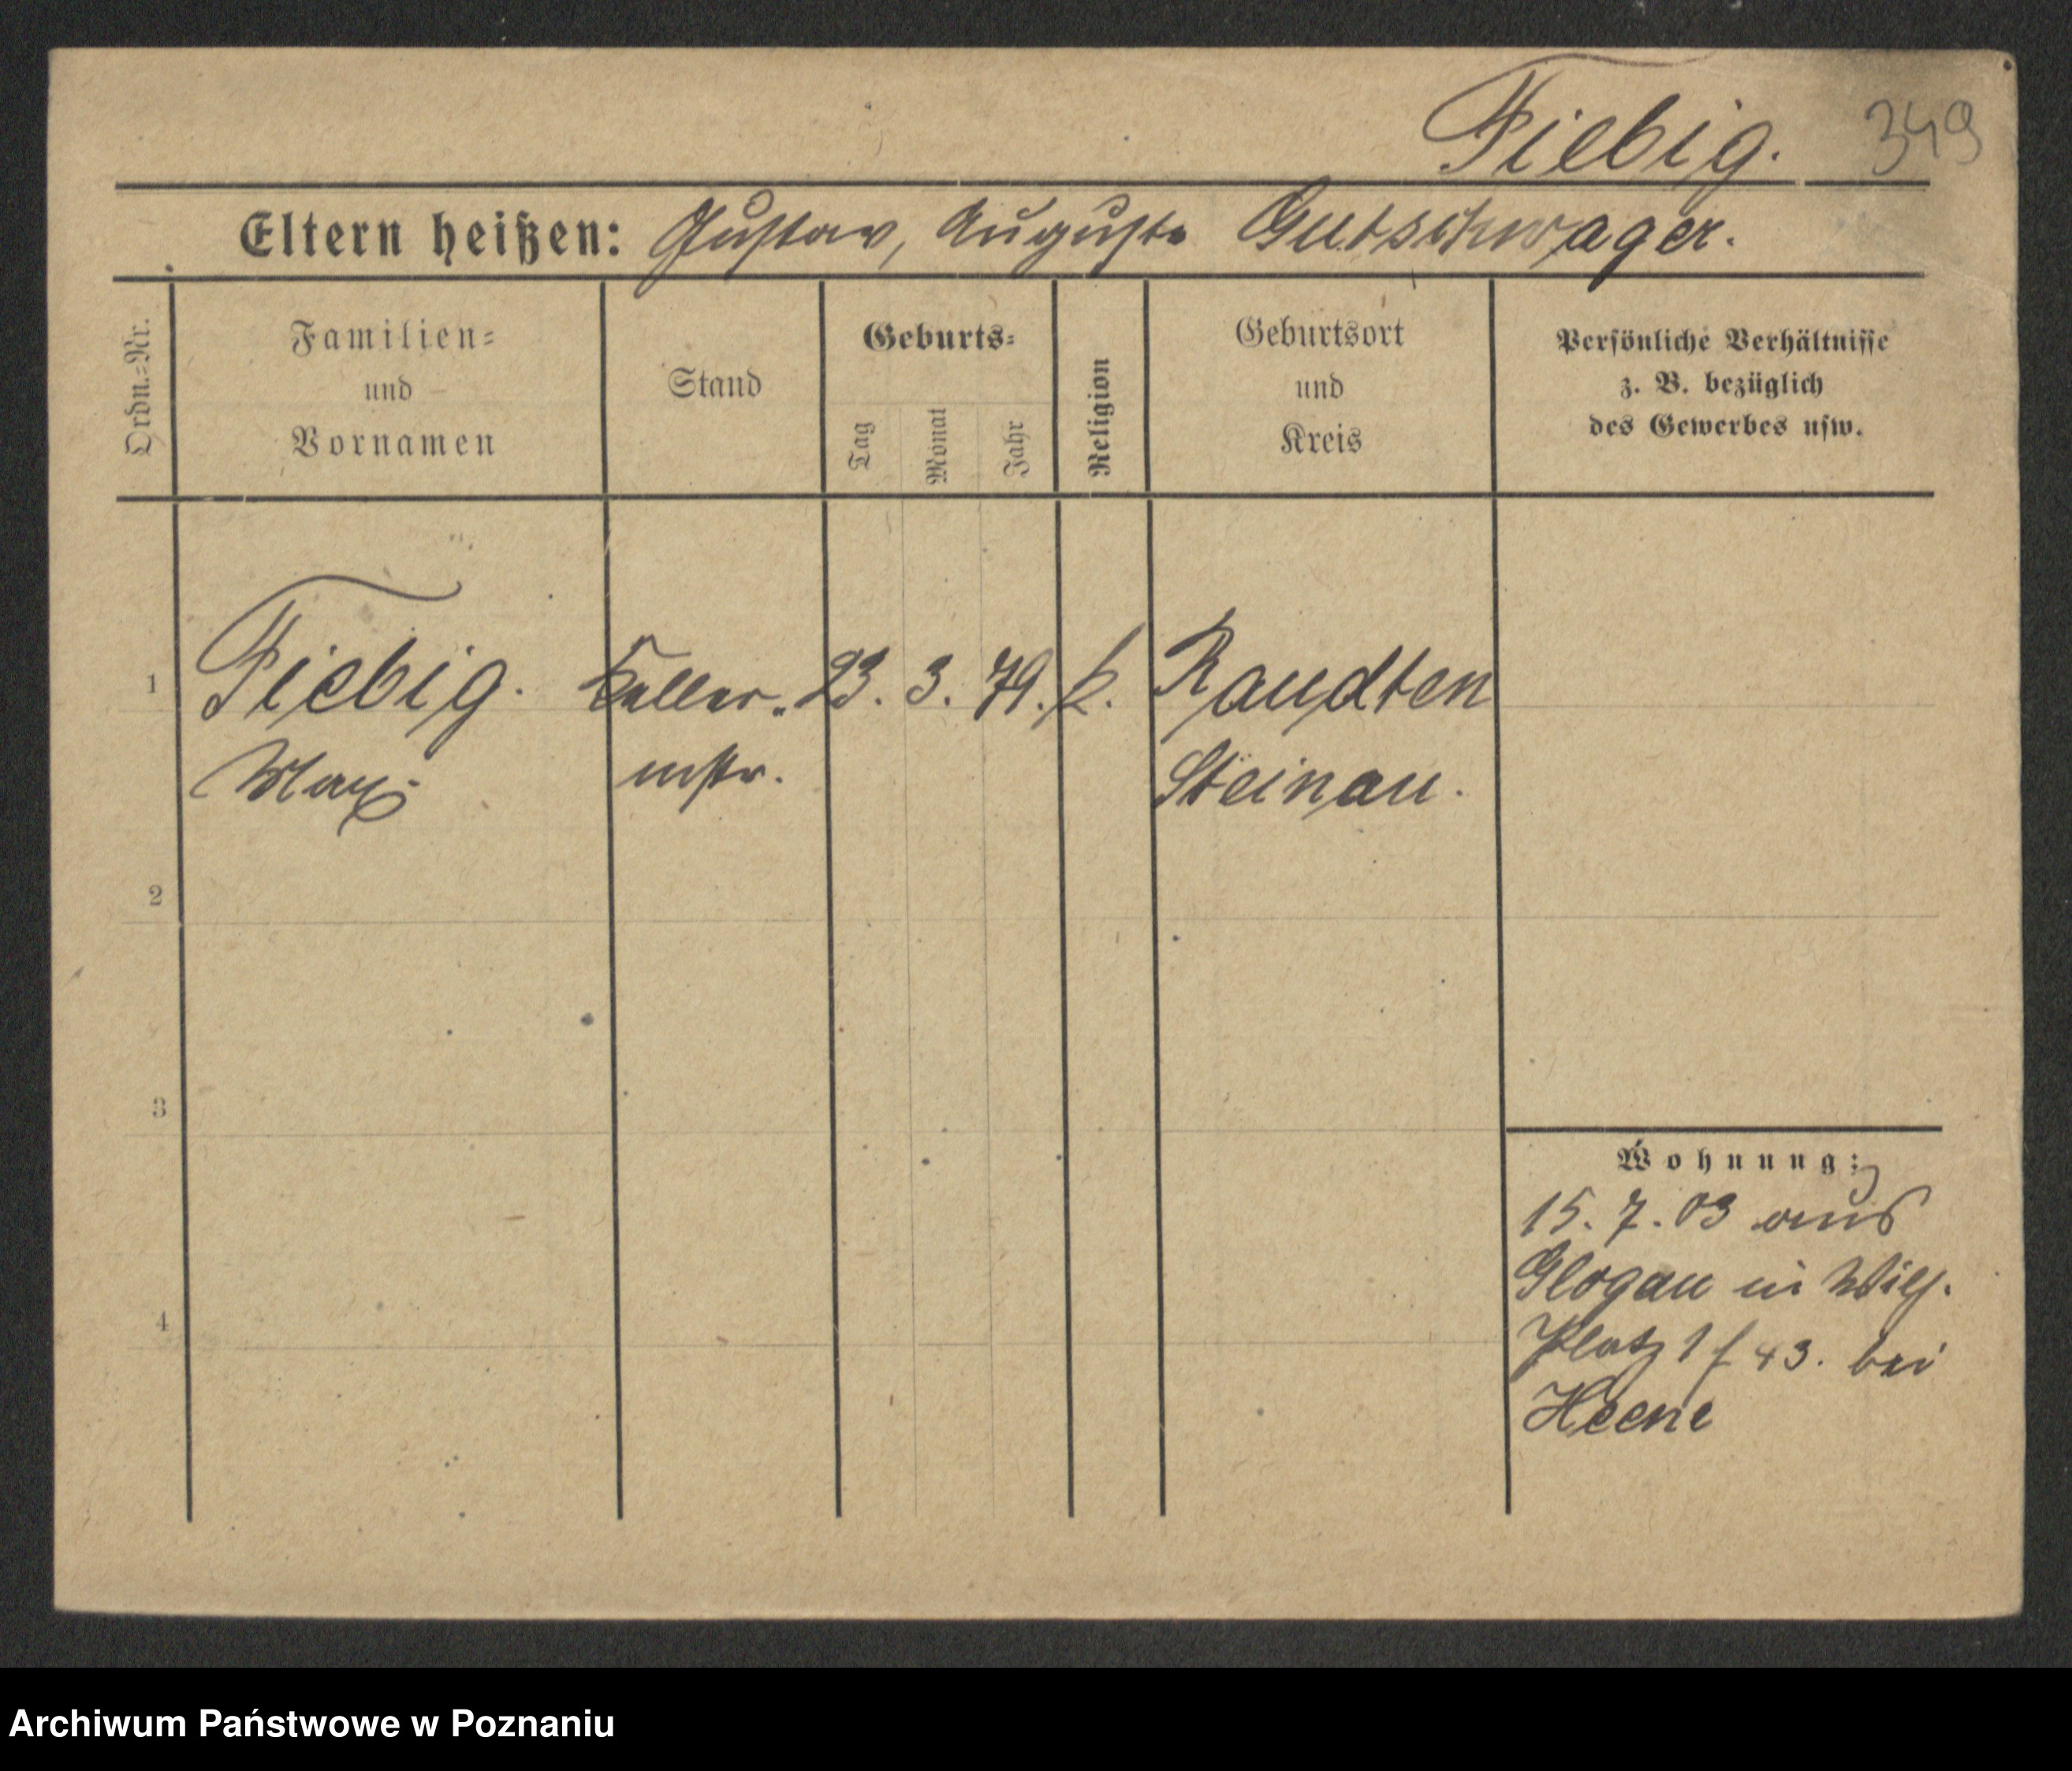 Fiebig. 349
Eltern heißen: Gustav, Auguste Gutschwager.
Ordn.-Nr.
Familien=
und
Vornamen
Stand
Geburts=
Tag
Monat
Jahr
Religion
Geburtsort
und
Kreis
Persönliche Verhältnisse
z. B. bezüglich
des Gewerbes usw.
1 Fiebig. Keller. 23. 3. 79. k. Raudten
Max mstr. Steinau.
2
3
4
Wohnung:
15. 7. 03 aus
Glogau in Wilh.
Platz 1 f 43. bei
Heene
Archiwum Państwowe w Poznaniu